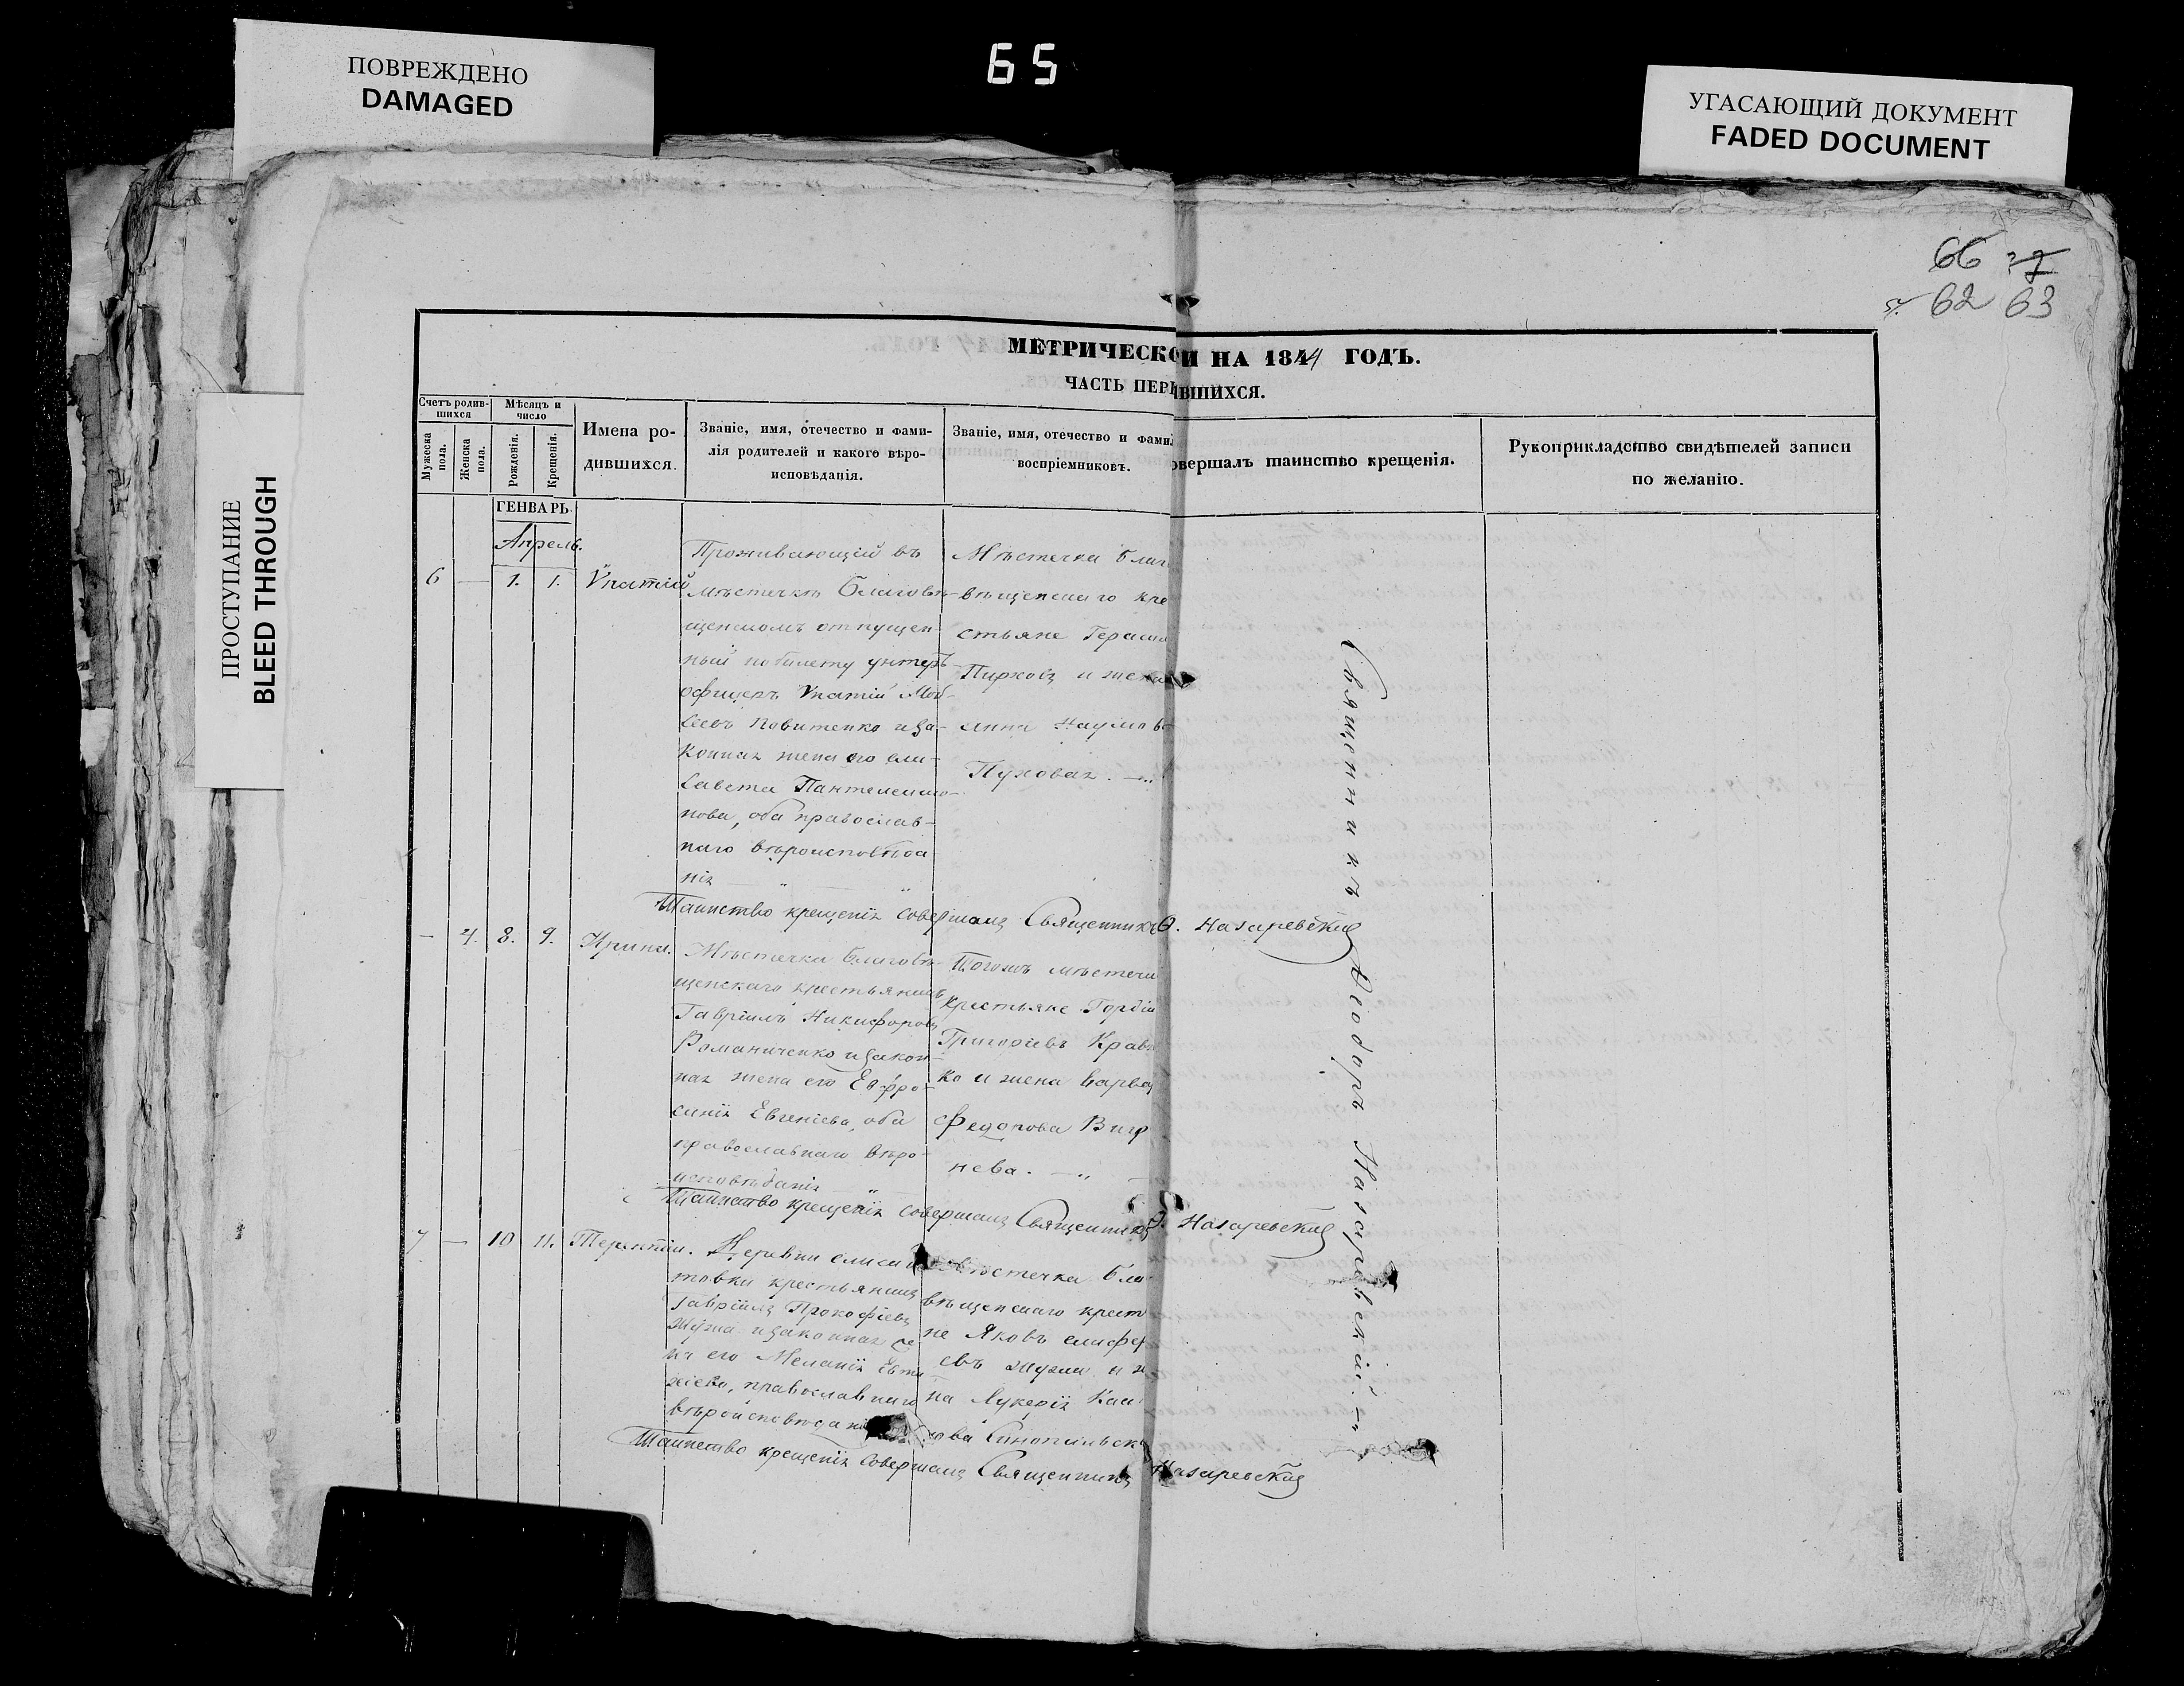 ПОВРЕЖДЕНО
DAMAGED
65
УГАСАЮЩИЙ ДОКУМЕНТ
FADED DOCUMENT
ПРОСТУПАНИЕ
BLEED THROUGH
66
62 63
МЕТРИЧЕСКО И НА 1844 ГОДЪ.
ЧАСТЬ ПЕР ВШИХСЯ.
Счетъ родив-
шихся
Мѣсяцъ и
число
Мужеска
пола.
Женска
пола.
Рожденія.
Крещенія.
Имена ро-
дившихся.
Званіе, имя, отечество и фами-
лія родителей и какого вѣро-
исповѣданія.
Званіе, имя, отечество и фами
воспріемниковъ.
овершалъ таинство крещенія.
Рукоприкладство свидѣтелей записи
по желанію.
ГЕНВАРЬ
Апрель.
6 — 1. 1. Ѵпатій
Проживающій въ
мѣстечкѣ Благовѣ-
щенскомъ отпущен-
ный по билету унтеръ
офицеръ Ѵпатій Мой-
сеевъ Повитенко и за-
конная жена его Ели-
савета Пантелеимо-
нова, оба православ-
наго вѣроисповѣда
нія
Мѣстечка Благ
вѣщенскаго кре
стьяне Герасим
Пирховъ и жена
Анна Наумов
Пухова.
Таинство крещенія совершалъ Священникъ Ѳ. Назаревскій
— 4. 8. 9. Ирина.
Мѣстечка Благовѣ-
щенскаго крестьянинъ
Гавріилъ Никифоровъ
Романиченко и закон-
ная жена его Евфро-
синія Евгеніева, оба
православнаго вѣро-
исповѣданія
Тогожъ мѣстечк
крестьяне Гордій
Григоріевъ Крав
ко и жена Варва
Федорова Виг
нева.
Таинство крещенія совершалъ Священникъ Ѳ. Назаревскій
7 — 10 11. Терентій.
Деревни Елиса
товки крестьянинъ
Гавріилъ Прокофіевъ
Жужа и законная же
на его Меланія Евти
хіева, православнаго
вѣроисповѣдані
Мѣстечка Бла
вѣщенскаго крест
не Яковъ Елифе
евъ и ж
на Лукерія
ова
Таинство крещенія совершалъ Священникъ Назаревскій
Священникъ Ѳеодоръ Назаревскій